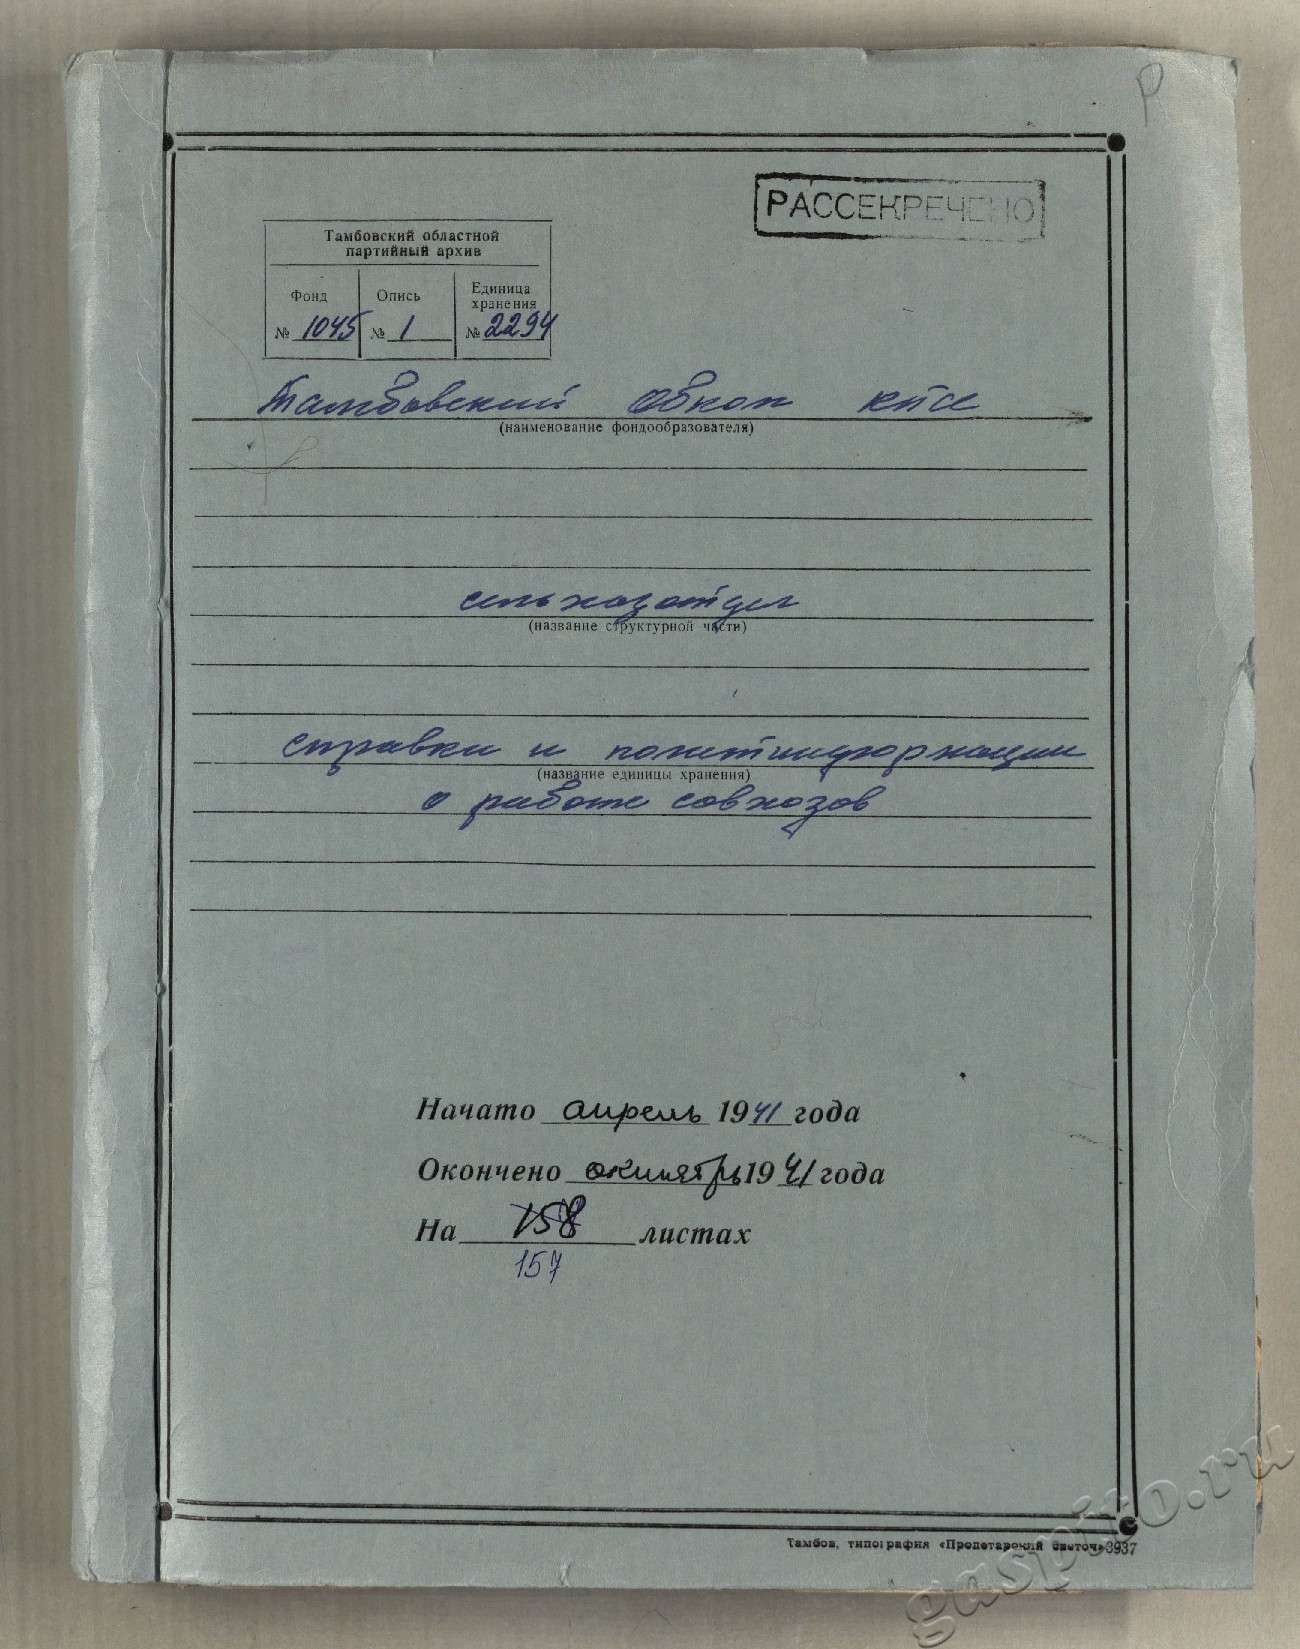 Р
РАССЕКРЕЧЕНО
Тамбовский областной
партийный архив
Фонд
№ 1045
Опись
№ 1
Единица
хранения
№ 2294
Тамбовский Обком КПСС
(наименование фондообразователя)
сельхозотдел
(название структурной части)
справки и политинформации
(название единицы хранения)
о работе совхозов
Начато апрель 1941 года
Окончено октябрь 1941 года
На 158 листах
157
Тамбов, типография «Пролетарский светоч» 3937
gaspito.ru